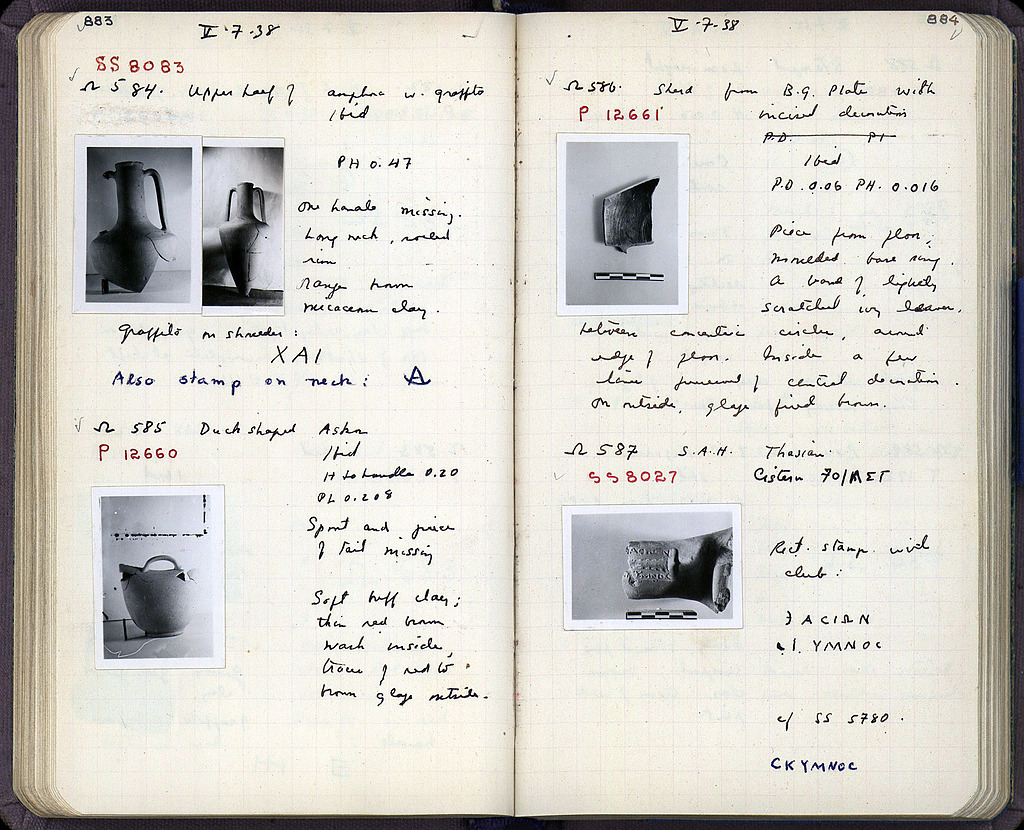 883
V·7·38
SS 8083
Ω 584. Upper half of amphora w. graffito
Ibid
PH 0.47
One handle missing.
Long neck, rolled
rim
Orange brown
micaceous clay.
Graffito on shoulder:
XAI
Also stamp on neck: A
Ω 585 Duck shaped Askos
P 12660
Ibid
H to handle 0.20
PL 0.208
Spout and piece
of tail missing
Soft buff clay;
thin red brown
wash inside,
traces of red to
brown glaze outside.
884
V·7·38
Ω 586. Sherd from B.G. Plate with
P 12661
incised decoration
P.D. PI
Ibid
P.D. 0.06 PH. 0.016
Piece from floor;
moulded base ring.
A band of lightly
scratched ivy leaves,
between concentric circles, around
edge of floor. Inside a few
lines preserved of central decoration.
On outside, glaze fired brown.
Ω 587 S.A.H. Thasian
SS 8027
Cistern 70/ΛΕΤ
Rect. stamp with
club:
ƎACIΩN
YMNOC
cf SS 5780.
CKYMNOC